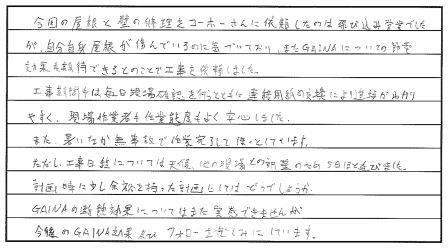 今回の屋根と壁の修理をコーホーさんに依頼したのは飛び込み営業でした
が、自分自身屋根が傷んでいるのに気づいており、またGAINAについての節電
効果も期待できるとのことで工事を依頼しました。
工事期間中は毎日現場確認を行うとともに連絡用紙の交換により進捗が分かり
やすく、現場作業者も作業態度もよく安心しました。
また、暑いなか無事故で作業完了してほっとしています。
ただし、工事日程については天候、他の現場との調整のため5日ほど延びました。
計画時に少し余裕を持った計画にしてはどうでしょうか。
GAINAの断熱効果についてはまだ実感できませんが
今後のGAINA効果及びフォローを楽しみにしています。